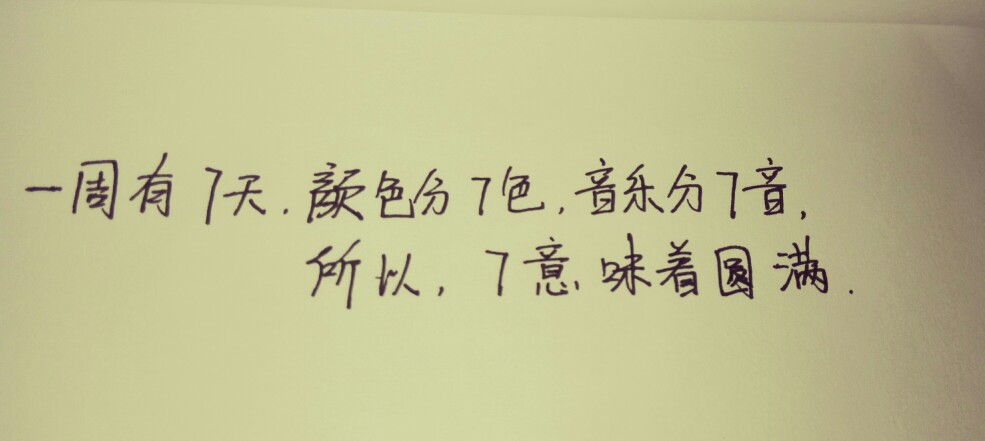 一周有7天.颜色分7色,音乐分7音,
所以,7意味着圆满.